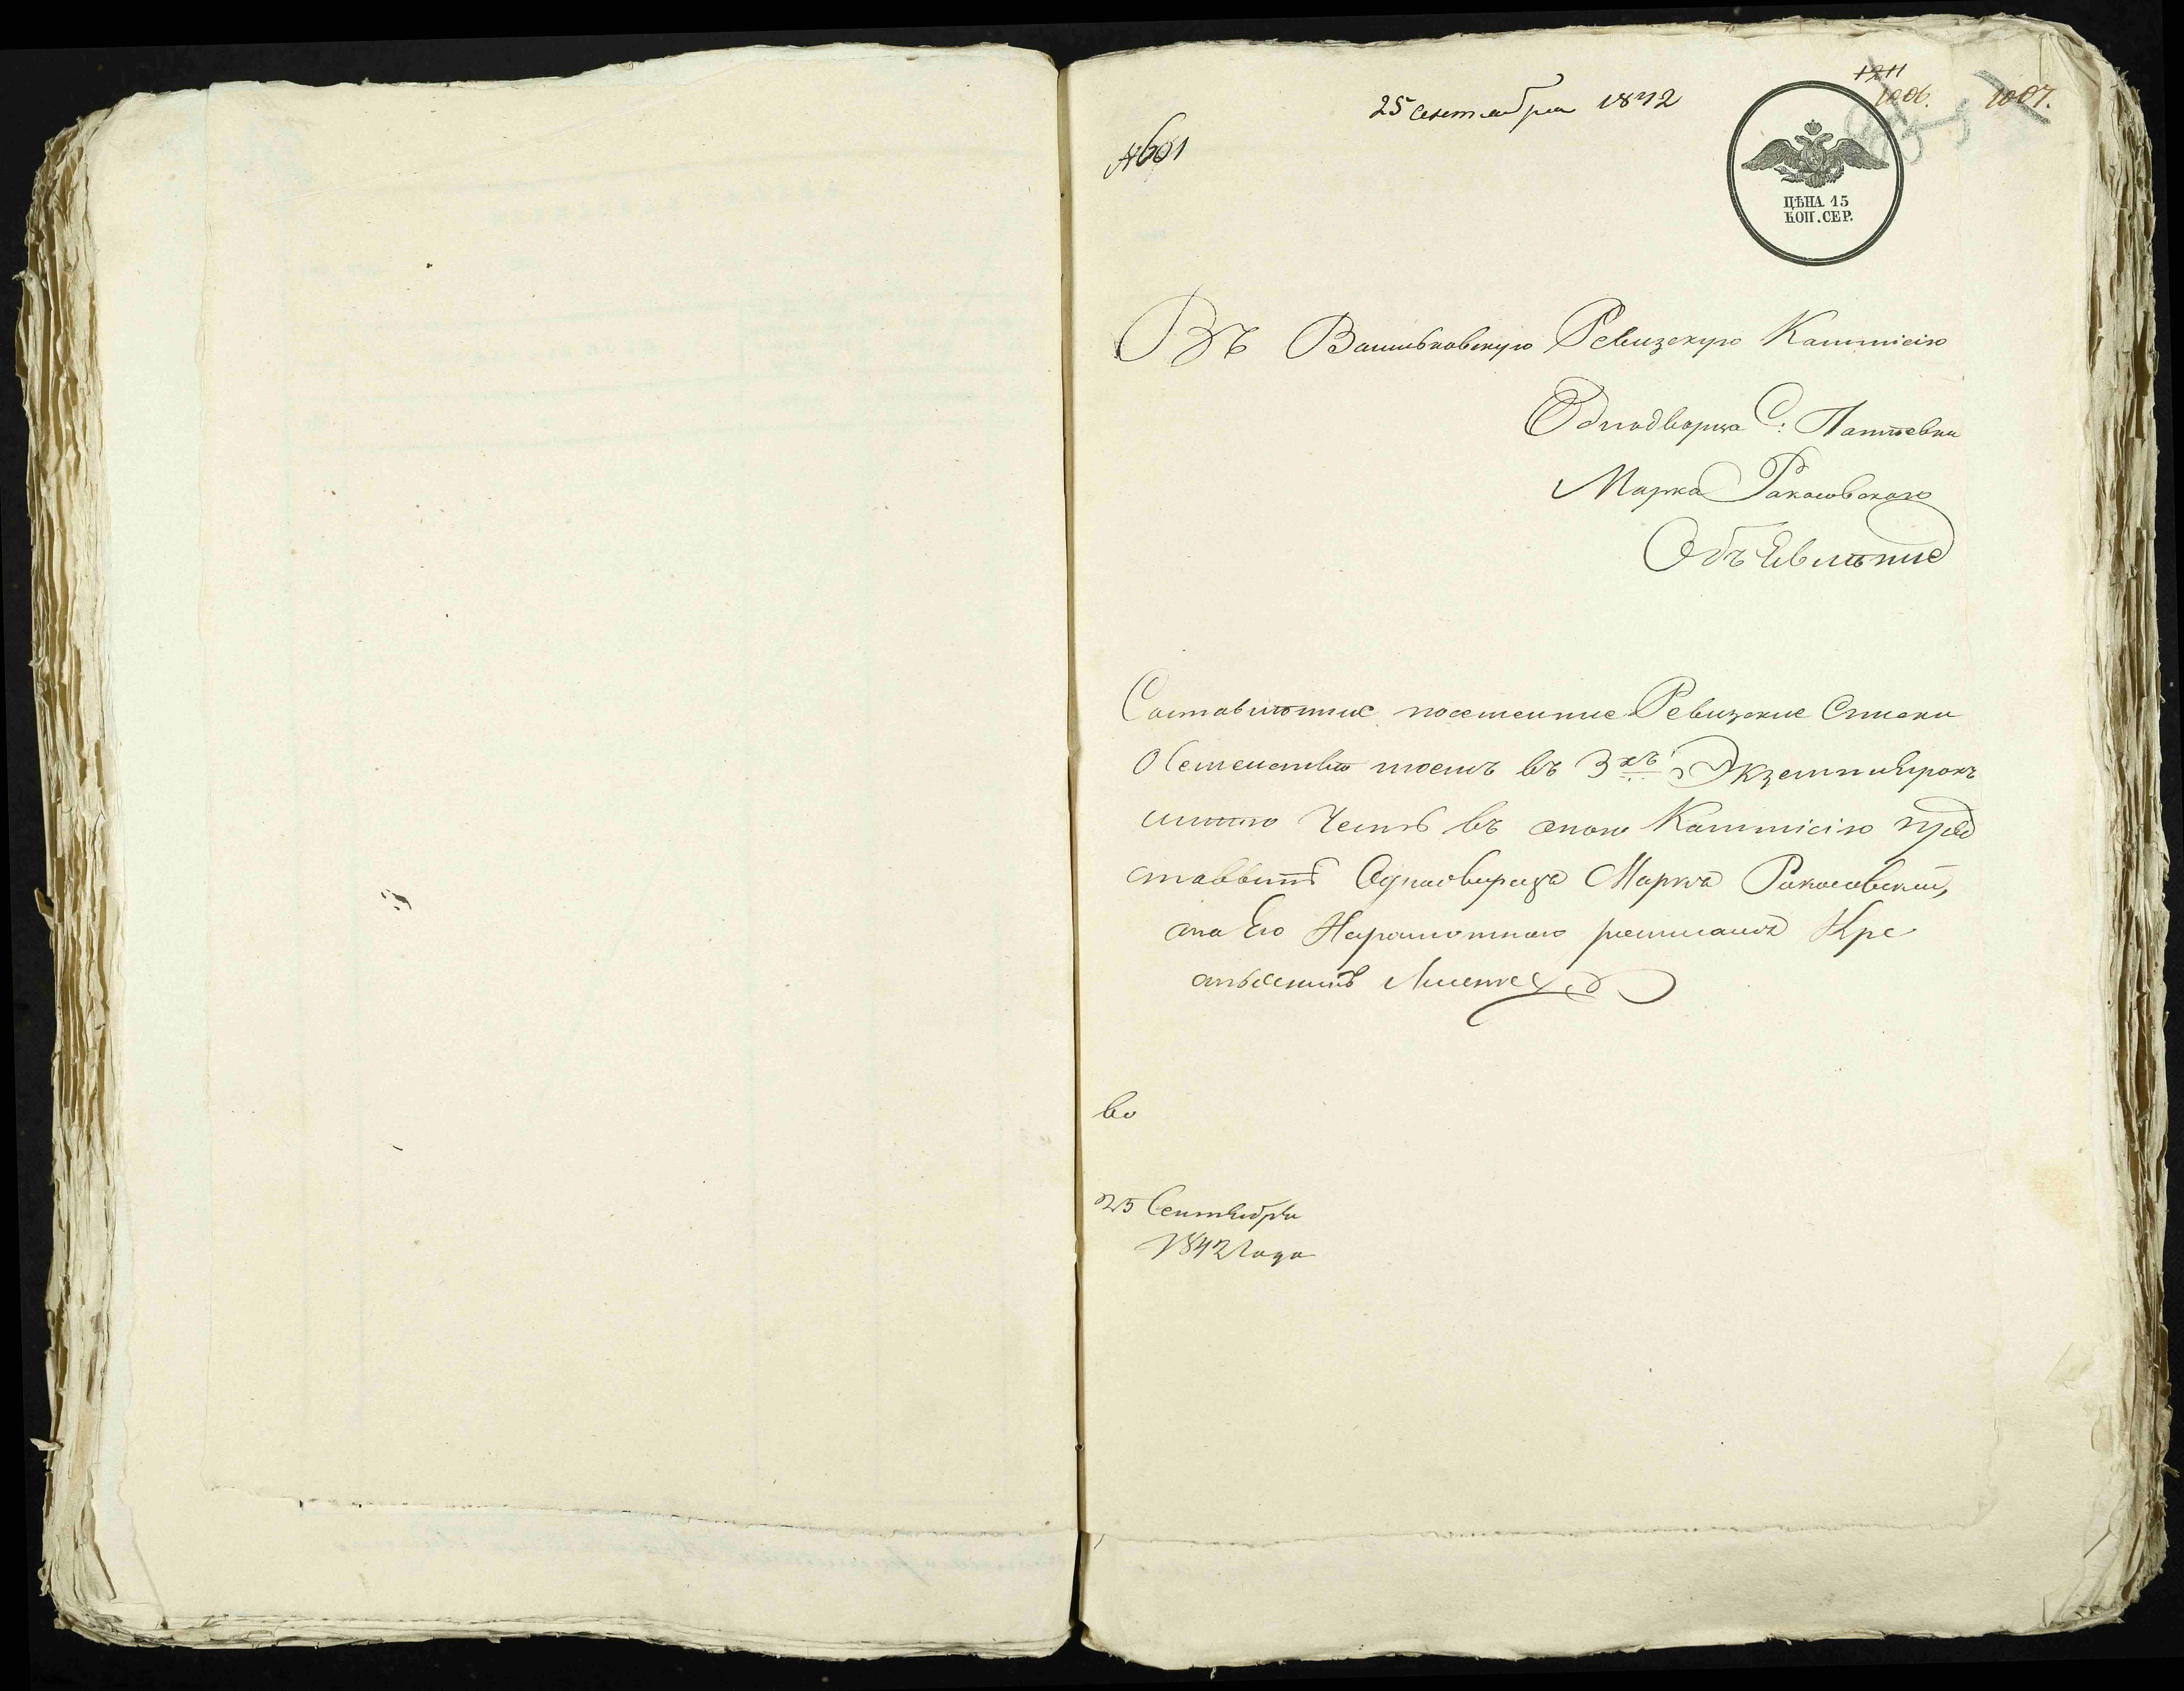 25 Сентября 1842
1211
1006. 1007.
№ 601
ЦѢНА 15
КОП. СЕР.
Въ Васильковскую Ревизскую Коммісію
Однодворца С: Пат
Марка Рокосовского
Объявление
Составленние посемейние Ревизские Списки
о Семействе моемъ въ 3хъ Экземплярохъ
имею Честь въ оною Коммісію пред
ставвить Однодворца Марко Рокосовский,
а на Его Неграмотного росписался Кре
стьянинъ
во
25 Сентября
1842 Года